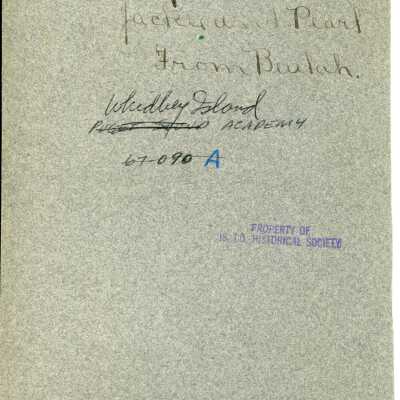 Jack and Pearl
From Beulah.
Whidbey Island
PUGET SOUND ACADEMY
67-090 A
PROPERTY OF
IS. CO. HISTORICAL SOCIETY